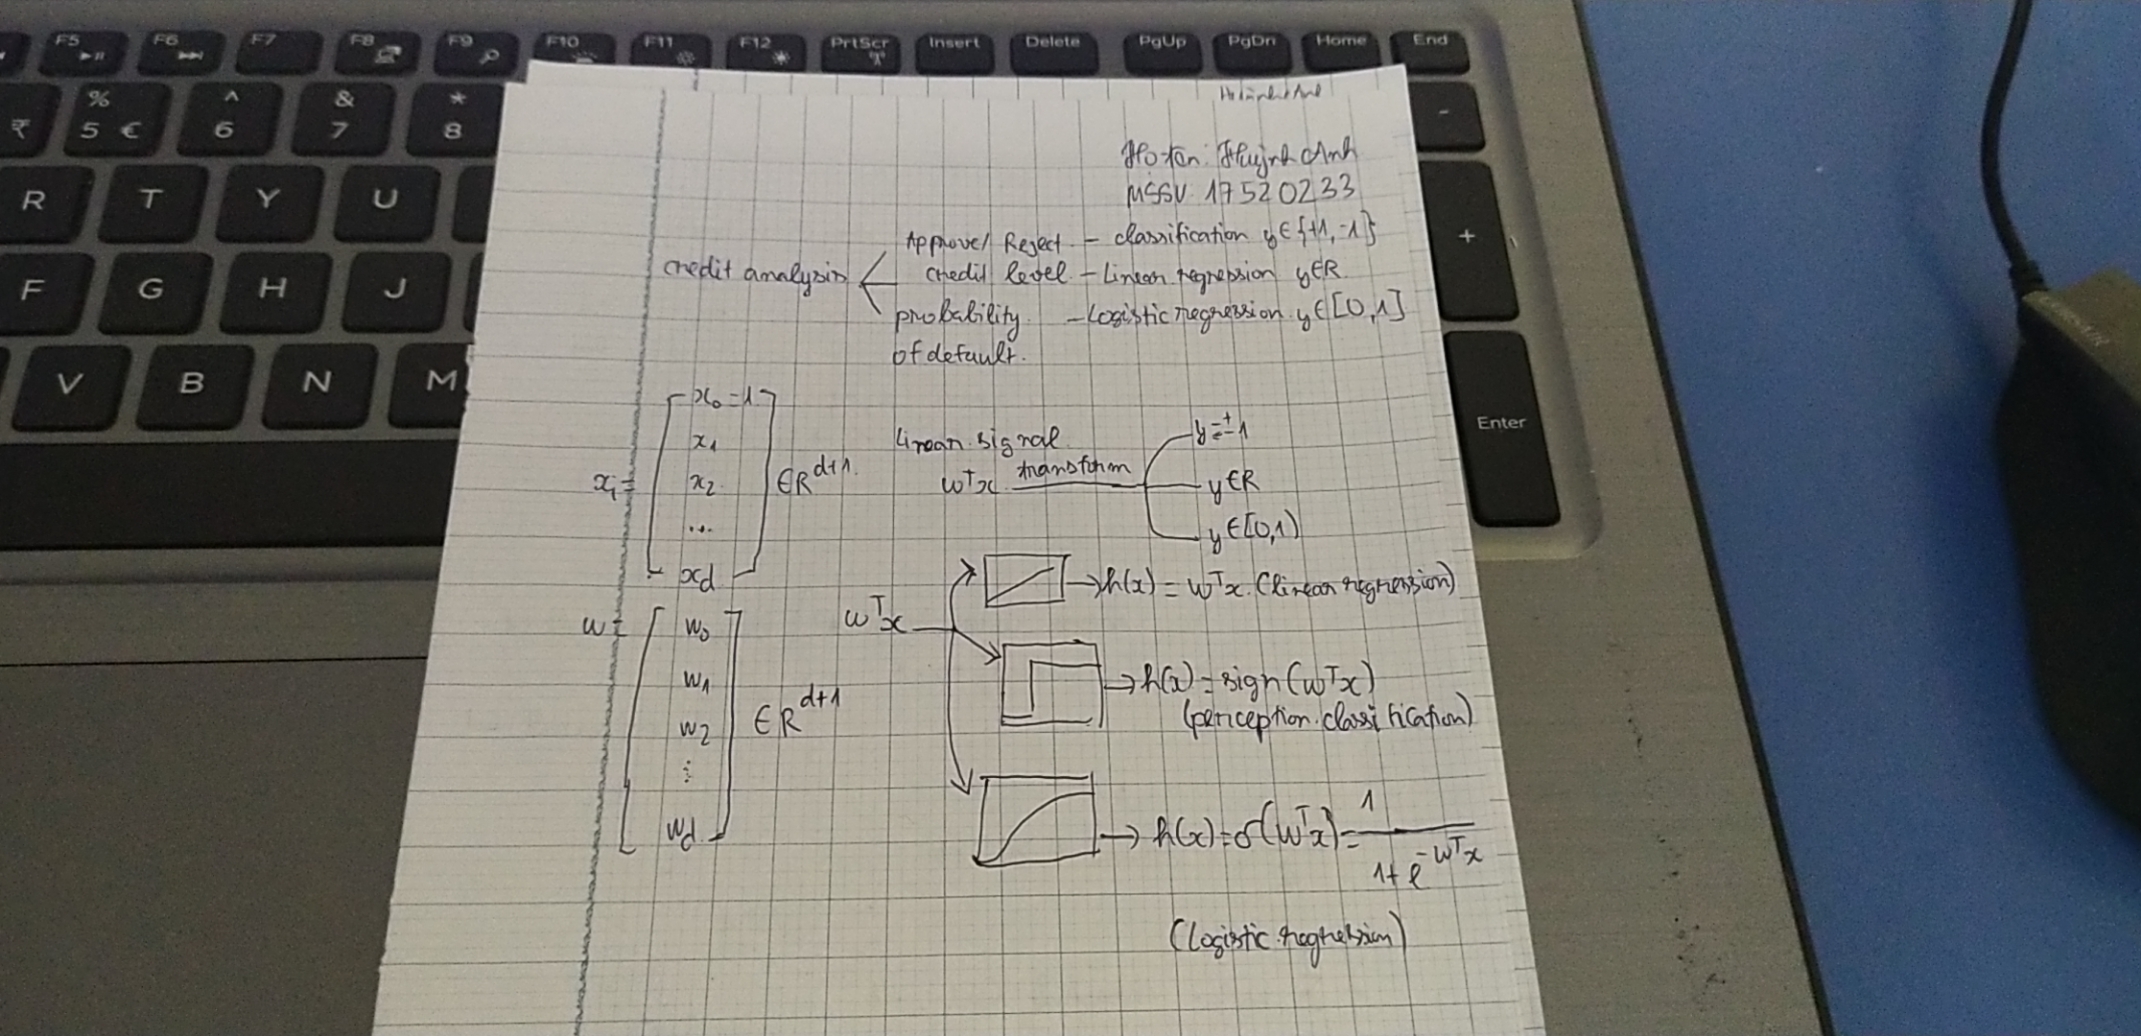 F5 F6 F7 F8 F9 F10 F11 F12 PrtScr Insert Delete PgUp PgDn Home End
₹ % 5 € ^ 6 & 7 * 8 -
R T Y U +
F G H J
V B N M Enter
Họ tên: Huỳnh Anh
MSSV: 17520233
credit analysis
Approve/ Reject - classification y∈{+1,-1}
credit level - Linear regression y∈R
probability - Logistic regression y∈[0,1]
of default.
xi = [x0=1 x1 x2 ... xd] ∈R^d+1
Linear signal
w^Tx transform
y=±1
y∈R
y∈[0,1)
w = [w0 w1 w2 ⋮ wd] ∈R^d+1
w^Tx
→ h(x) = w^Tx (linear regression)
→ h(x) = sign(w^Tx)
(perception classification)
→ h(x)=σ(w^Tx)= 1/(1+e^-w^Tx)
(Logistic regression)